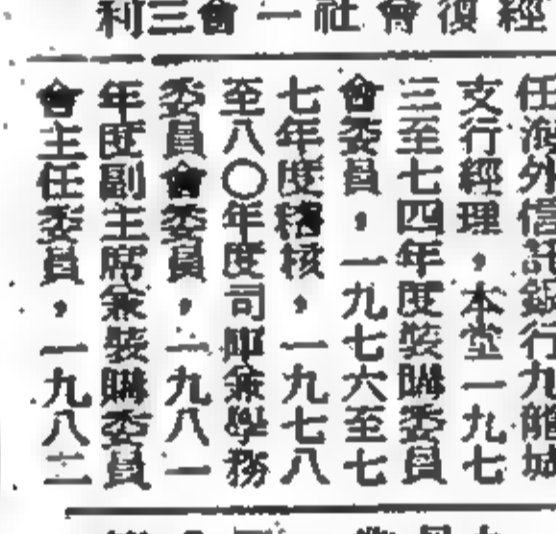 任海外信託銀行九龍城
支行經理，本堂一九七
三至七四年度裝賻委員
會委員，一九七六至七
七年度稽核，一九七八
至八〇年度司庫兼學務
委員會委員，一九八一
年度副主席兼裝賻委員
會主任委員，一九八二